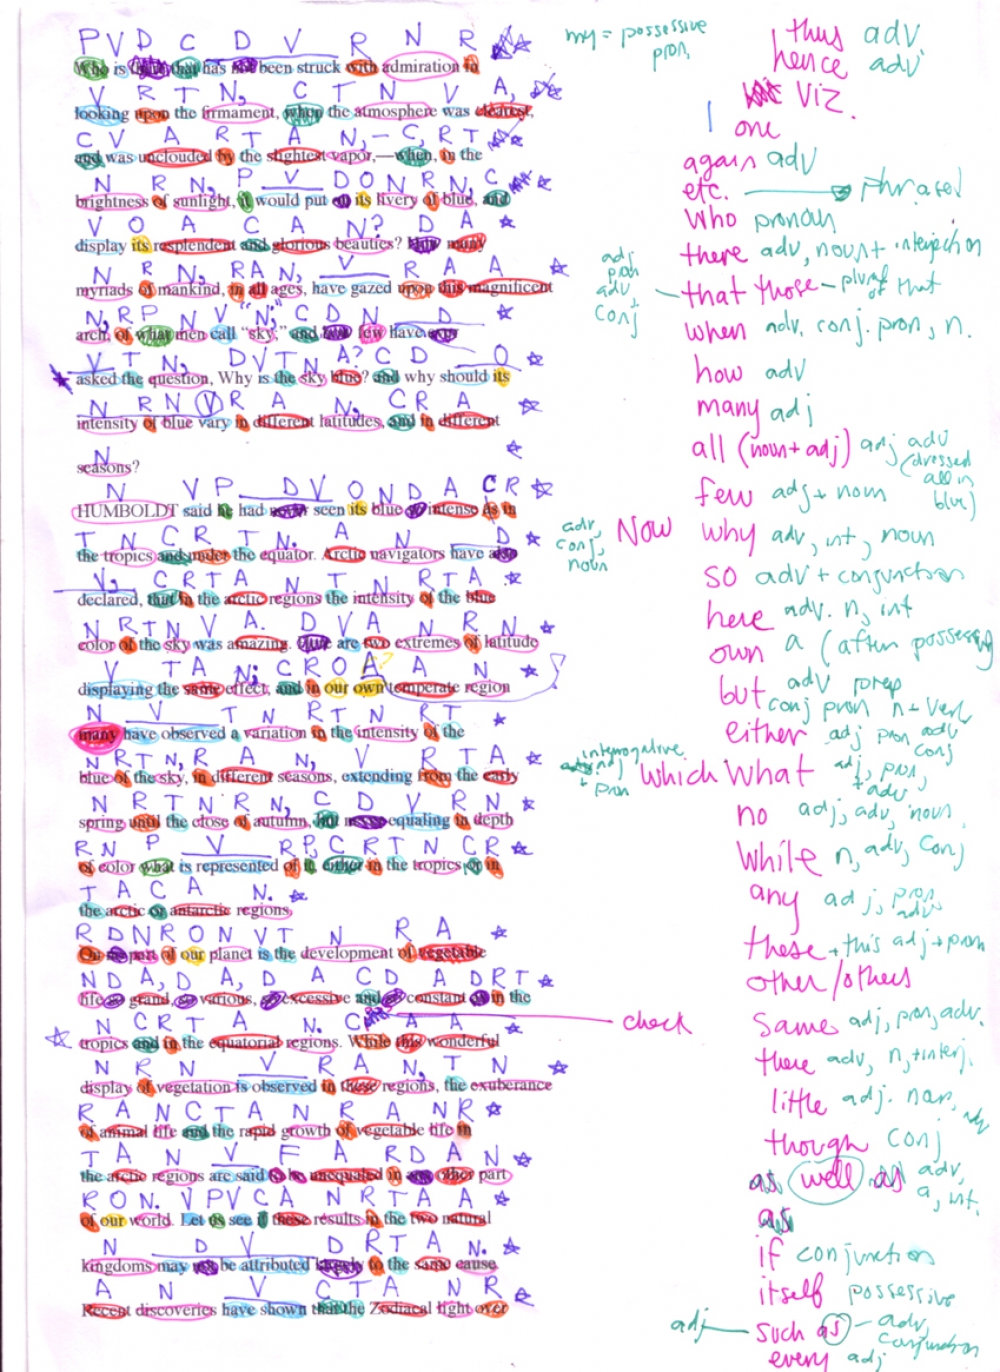 P V D C D V R N R
Who is there that has not been struck with admiration in
V R T N, C T N V A,
looking upon the firmament, when the atmosphere was clearest,
C V A R T A N, – C, R T
and was unclouded by the slightest vapor,—when, in the
N R N, P V D O N R N, C
brightness of sunlight, it would put on its livery of blue, and
V O A C A N? D A
display its resplendent and glorious beauties? How many
N R N, R A N, V R A A
myriads of mankind, in all ages, have gazed upon this magnificent
N, R P N V "N," C D N D
arch, of what men call "sky," and how few have ever
V T N, D V T N A? C D O
asked the question, Why is the sky blue? and why should its
N R N V R A N, C R A
intensity of blue vary in different latitudes, and in different
N
seasons?
N V P D V O N D A C R
HUMBOLDT said he had never seen its blue so intense as in
T N C R T N. A N D
the tropics and under the equator. Arctic navigators have also
V, C R T A N T N R T A
declared, that in the arctic regions the intensity of the blue
N R T N V A. D V A N R N
color of the sky was amazing. Here are two extremes of latitude
V T A N; C R O A? A N
displaying the same effect; and in our own temperate region
N V T N R T N R T
many have observed a variation in the intensity of the
N R T N, R A N, V R T A
blue of the sky, in different seasons, extending from the early
N R T N R N, C D V R N
spring until the close of autumn, but never equaling in depth
R N P V R P, C R T N C R
of color what is represented of it, either in the tropics or in
T A C A N.
the arctic or antarctic regions.
R D N R O N V T N R A
On no part of our planet is the development of vegetable
N D A, D A, D A C D A D R T
life so grand, so various, so excessive and so constant as in the
N C R T A N. C A A
tropics and in the equatorial regions. While this wonderful
N R N V R A N, T N
display of vegetation is observed in these regions, the exuberance
R A N C T A N R A N R
of animal life and the rapid growth of vegetable life in
T A N V F A R D A N
the arctic regions are said to be unequaled in any other part
R O N. V P V C A N R T A A
of our world. Let us see if these results in the two natural
N D V D R T A N.
kingdoms may not be attributed largely to the same cause.
A N V C T A N R
Recent discoveries have shown that the Zodiacal light over
my = possessive pron,
thus adv
hence adv
viz.
one
again adv
etc. phrased
who pronoun
there adv, noun + interjection
adj pron adv, conj
that those – plural of that
when adv, conj. pron, n.
how adv
many adj
all (noun + adj) adj adv (dressed all in blue)
few adj + noun
adv, conj, noun
Now why adv, int, noun
so adv + conjunction
here adv. n, int
own a (after possessive)
but adv prep conj pron n + verb
either adj pron adv conj
interrogative + pron
which what adj, pron, + adv
no adj, adv, noun
while n, adv, conj
any adj, pron, adv
these + this adj + pron
other/others
check
same adj, pron, adv.
there adv, n, + interj.
little adj. noun, adv
though conj
as well as adv, a, int.
as
if conjunction
itself possessive
adj such as – adv, conjunction
every adj